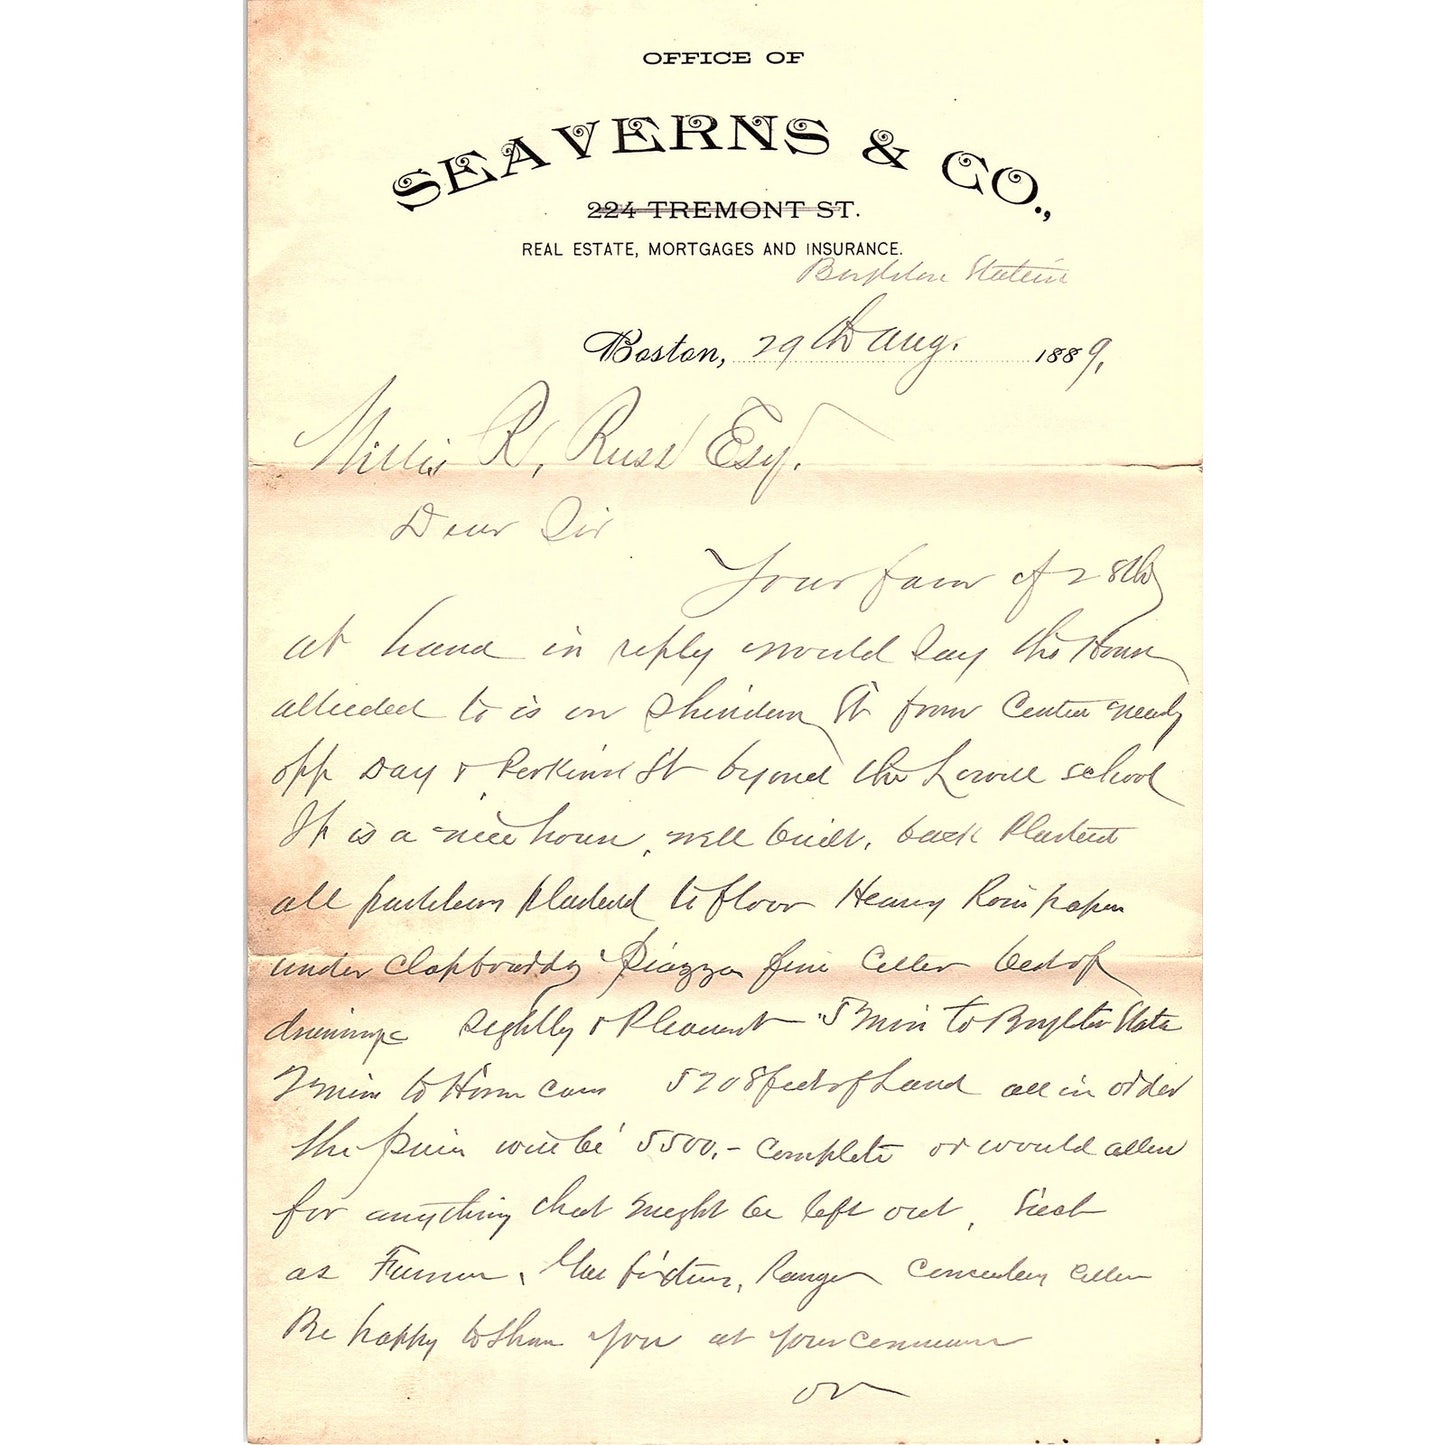 OFFICE OF
SEAVERNS & CO.,
224 TREMONT ST.
REAL ESTATE, MORTGAGES AND INSURANCE.
Boston, 29th Aug. 1889,
Willis R, Russ Esq.
Dear Sir
Your favor of 28th
at hand in reply would say the House
alluded to is on St from Center nearly
opp Day & Perkins St beyond the Lowell school
It is a nice house, well built, back Plastered
all plastered to floor Heavy Rosin paper
under clapboards Piazza fine Celler best of
drainage sightly & Pleasant 5 min to Station
2 min to Horse cars 5208 feet of Land all in order
the price will be 5500.- Complete or would allow
for anything that might be left out, Such
as Furnace, Gas fixtures, Range Celler
Be happy to show you at your
or